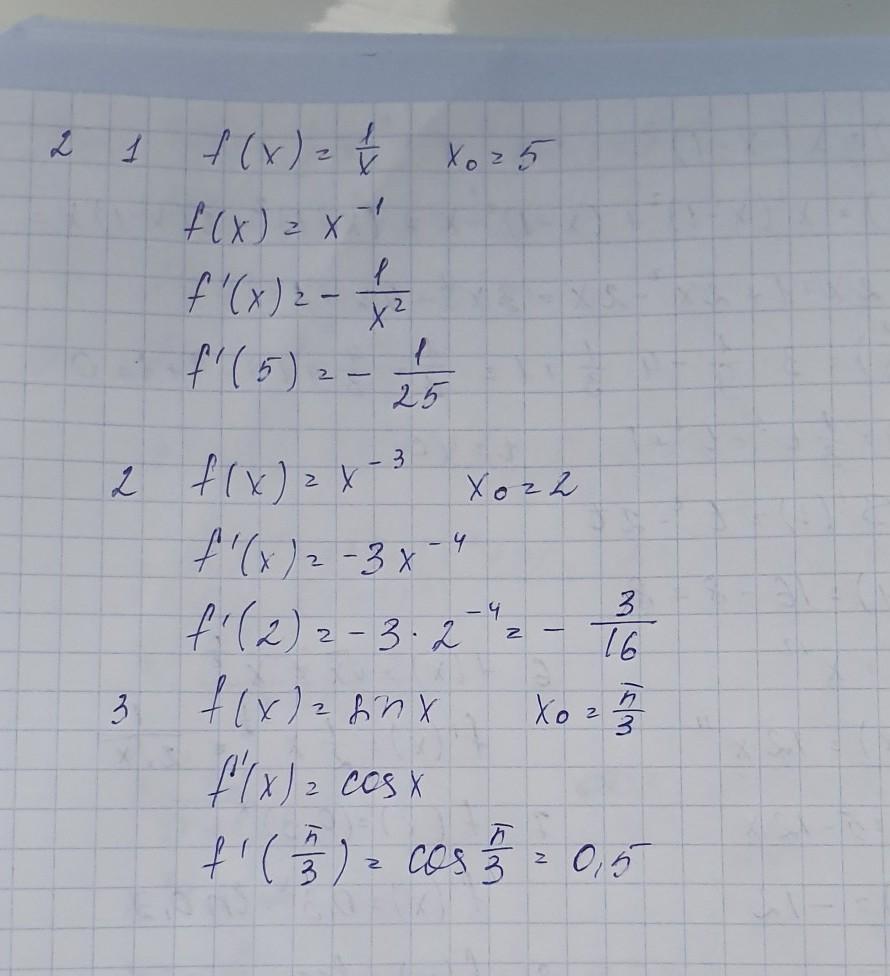 2 1 f(x) = 1/x x₀ = 5
f(x) = x⁻¹
f'(x) = - 1/x²
f'(5) = - 1/25
2 f(x) = x⁻³ x₀ = 2
f'(x) = -3x⁻⁴
f'(2) = -3 · 2⁻⁴ = - 3/16
3 f(x) = sin x x₀ = π/3
f'(x) = cos x
f'(π/3) = cos π/3 = 0,5